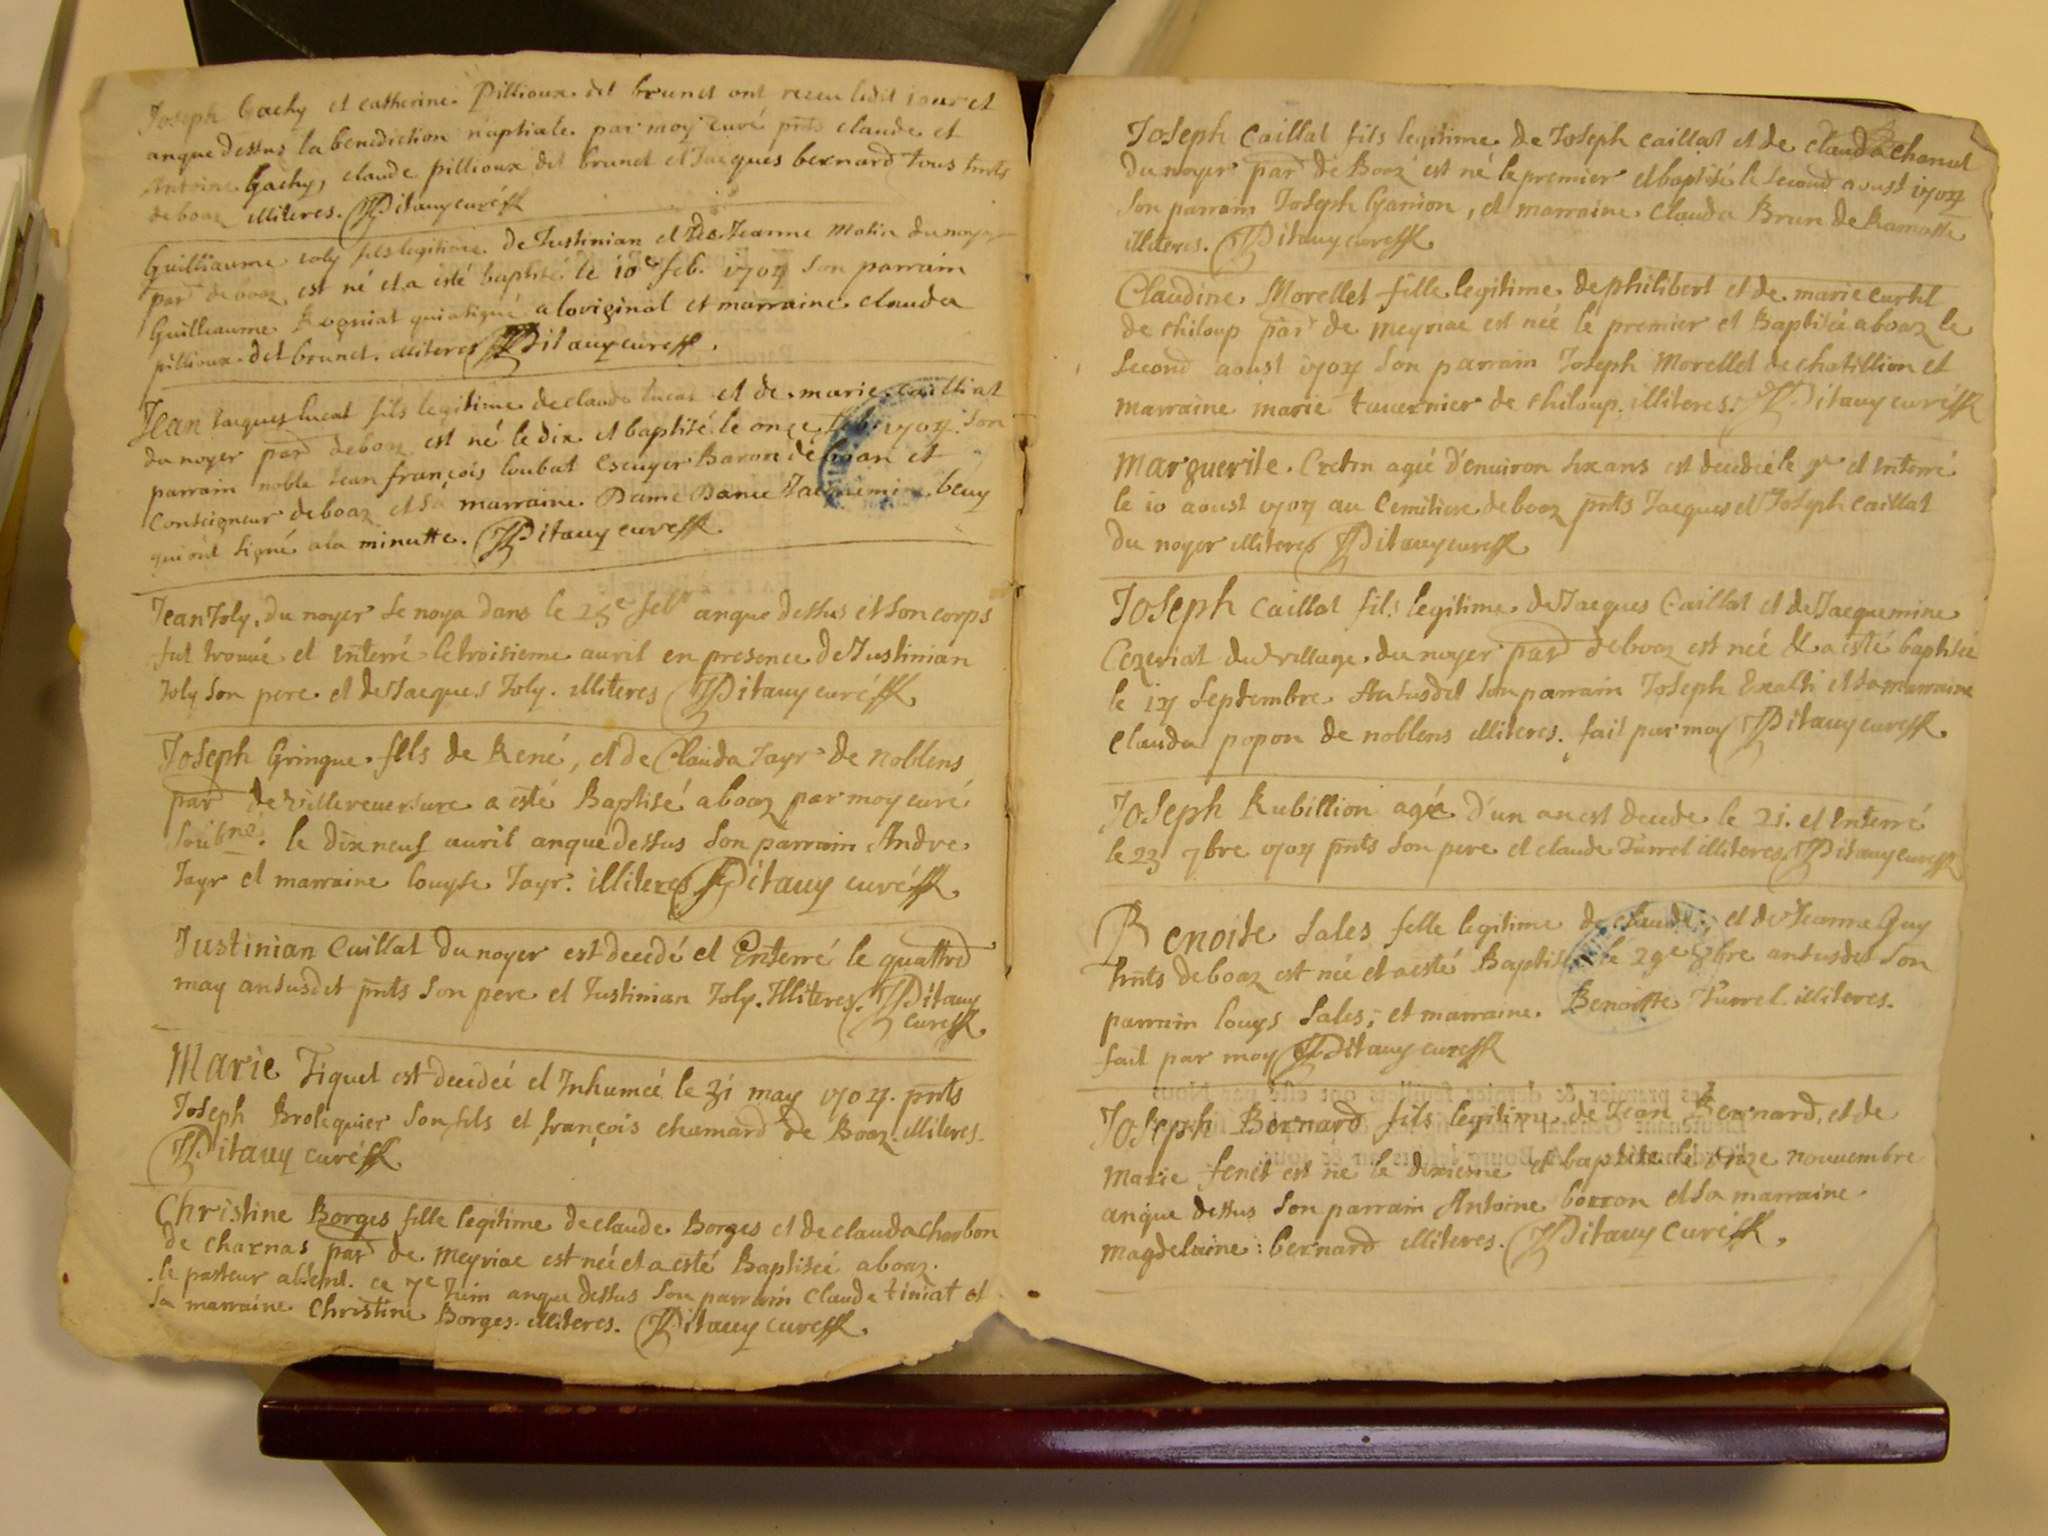 Joseph Gachy et catherine Pillioux dit brunet ont receu ledit iour et
anque dessus la benediction nuptiale par moy curé pnts claude et
Antoine Gachy, claude pillioux dit brunet et Jacques bernard tous hnts
de boaz illiteres. JPitauy curé
Guilliaume ioly fils legitime de Justinian et de Jeanne Matin du noyer
par deboaz est né et a esté baptisé le 10e feb. 1704 son parrain
Guilleaume Rogniat qui a signé a loriginal et marraine clauda
pillioux dit brunet. illiteres JPitauy cure
Jean Jacques lucat fils legitime de claude lucat et de marie cailliat
du noyer par deboaz est né le dix et baptisé le onze feb. 1704 son
parrain noble Jean françois loubat escuyer Baron de bōan et
Conseigneur de boaz et sa marraine Dame Jacquemine beuy
qui ont signé a la minutte. JPitauy cure
Jean Joly du noyer se noya dans le 25e febr anque dessus et son corps
fut trouué et Enterré le troisieme auril en presence de Justinian
Joly son pere et de Jacques Joly. illiteres JPitauy curé
Joseph Gringue fils de René, et de Clauda Jayr de noblens
par de villereuersure a esté Baptisé a boaz par moy curé
soubné. le dix neuf auril anque dessus son parrain Andre
Jayr et marraine louyse Jayr. illiteres JPitauy curé
Justinian Caillat du noyer est decedé et Enterré le quattre
may ansusdit pnts son pere et Justinian Joly. Illiteres. JPitauy
cure
Marie Tiquet est decedeé et Inhumeé le 31 may 1704. pnts
Joseph Brolequier son fils et françois chamard de Boaz. illiteres.
JPitauy curé
Christine Borges fille legitime de claude Borges et de clauda charbon
de charnas par de meyriac est neé et a esté Baptiseé a boaz.
le pasteur absent. ce 7e Juin anque dessus son parrain claude tiniat et
sa marraine Christine Borges. illiteres. JPitauy cure
Joseph Caillat fils legitime de Joseph caillat et de clauda chanut
du noyer par de Boaz est né le premier et baptisé le second aoust 1704
son parrain Joseph Ganion, et marraine Clauda Brun de Ramasse
illiteres. JPitauy cure
Claudine Morellet fille legitime de philibert et de marie curtil
de chiloup par de meyriac est neé le premier et Baptiseé a boaz le
second aoust 1704 son parrain Joseph Morellet de chatillion et
marraine marie tauernier de chiloup. illiteres. JPitauy curé
Marguerite Cretin ageé d'enuiron six ans est decedeé le 9e et Enterré
le 10 aoust 1704 au Cemitiere de boaz pnts Jacques et Joseph caillat
du noyer illiteres JPitauy cure
Joseph Caillat fils legitime de Jacques Caillat et de Jacquemine
Cezeriat du village du noyer par de boaz est neé & a esté baptiseé
le 17 septembre Ansusdit son parrain Joseph Exalti et sa marraine
clauda popon de noblens illiteres. fait par moy JPitauy cure
Joseph Rubillion agé d'un an est decede le 21. et Enterré
le 23 7bre 1704 pnts son pere et claude Turrel illiteres. JPitauy cure
Benoite Sales fille legitime de claude, et de Jeanne Guy
hnts de boaz est neé et a esté Baptiseé le 29e 8bre ansusdit son
parrain louys Sales, et marraine Benoitte Turrel illiteres.
fait par moy JPitauy cure
Joseph Bernard fils legitime de Jean Bernard, et de
Marie fenet est ne le dixieme et baptise le onze nouuembre
anque dessus son parrain Antoine borron et sa marraine
magdelaine bernard illiteres. JPitauy Curé